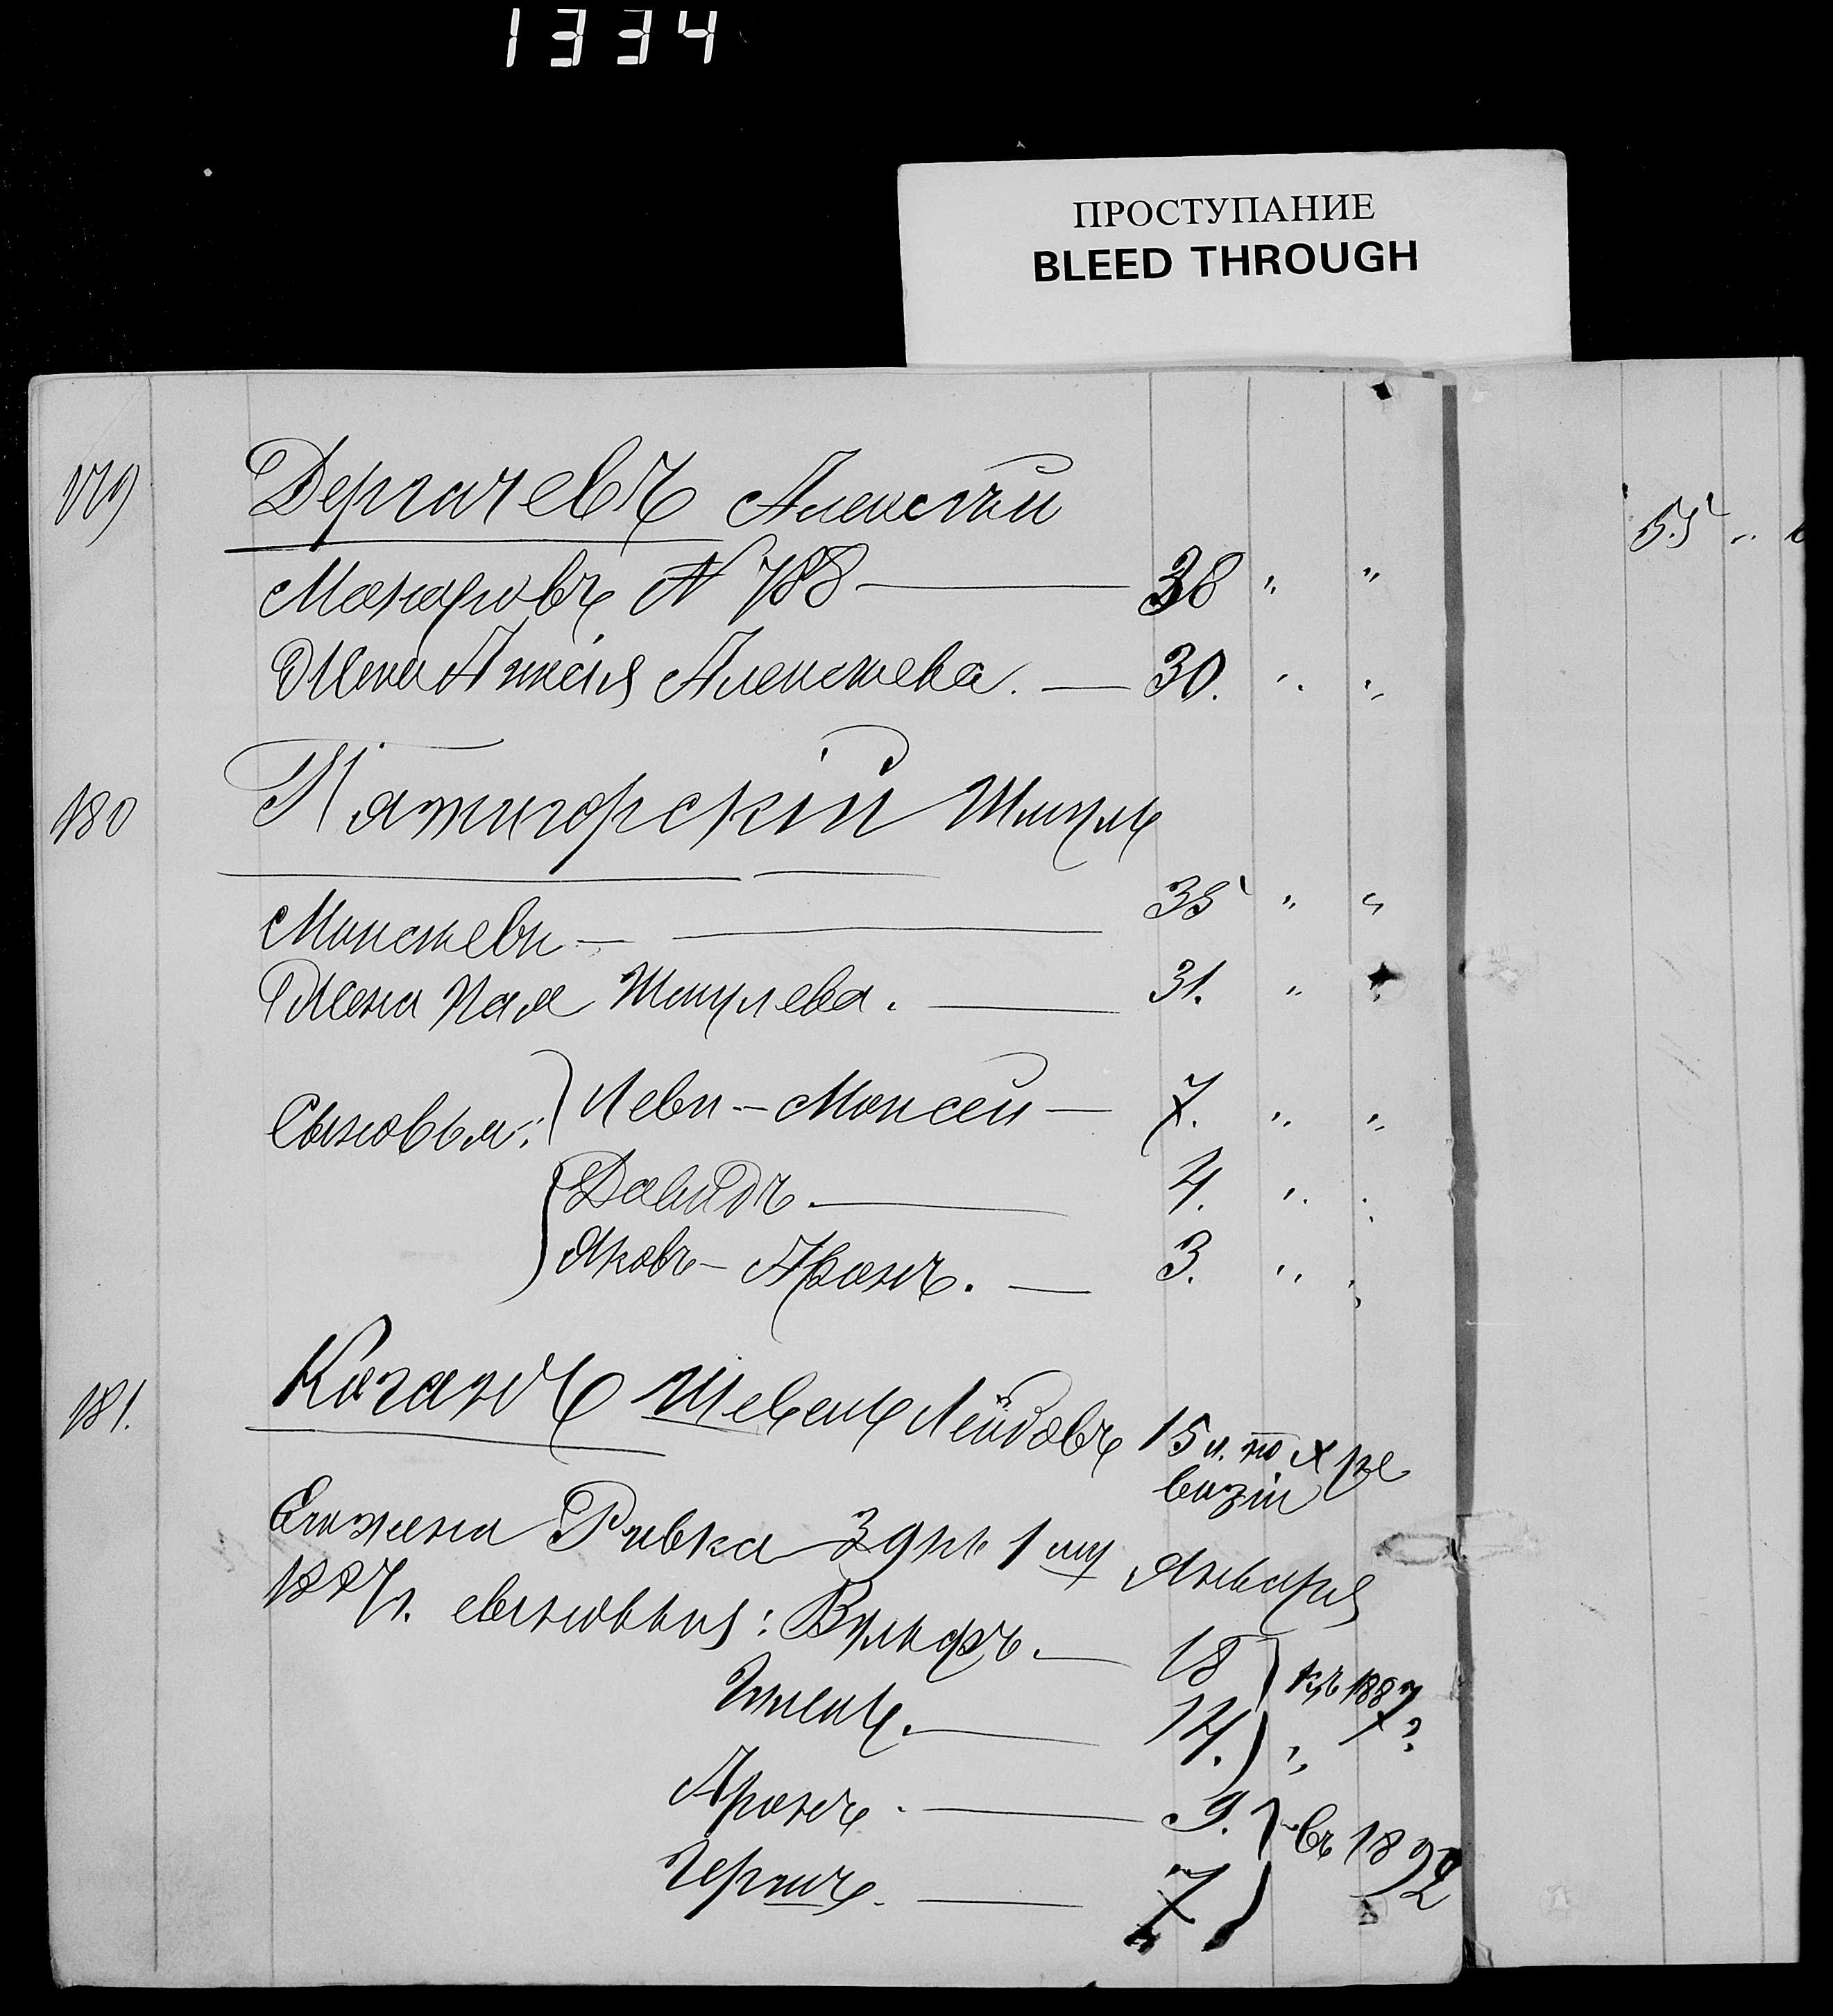 1334
ПРОСТУПАНИЕ
BLEED THROUGH
179 Дергачевъ Алексѣй
Макаровъ N 788 — 38 " "
Жена Алексѣева. — 30. " "
55 "
180 Пятигорскій Шмуль
Моисеевъ — 35 " "
Жена Хая Шмулева. — 31. " "
Сыновья: Левъ-Моисей — 7. " "
Давидъ — 4. " "
Яковъ-Аронъ. — 3. " "
181. Каганъ Шевель Лейбовъ 15 л. по X ре
визіи
Его жена Ривка 39 къ 1 му Января
1887 г. сыновья: Вульфъ — 18 къ 1887
14. "
Аронъ. — 9. въ 1892
Герцъ. — 7